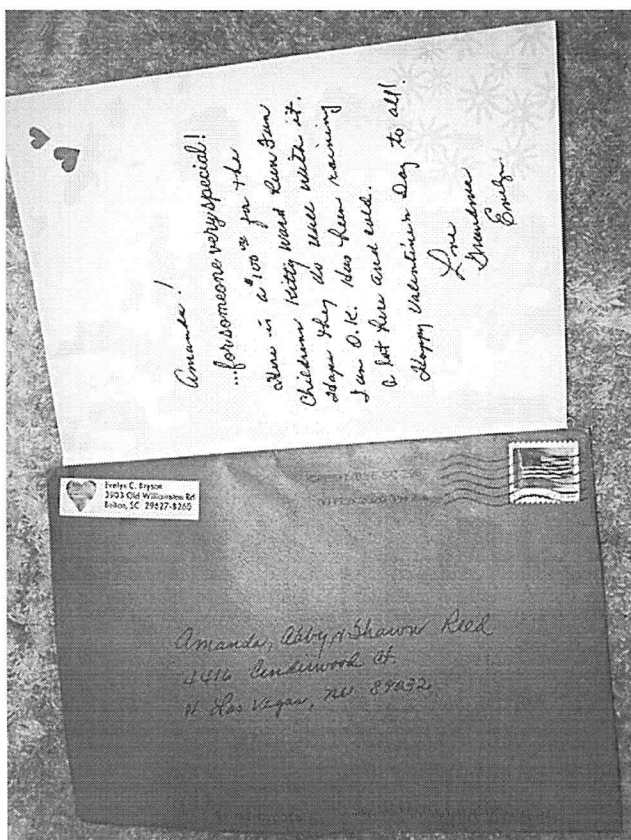 Amanda!
...for someone very special!
Here is a $100.00 for the
Childrens Kitty ward Run Fun
Hope they do well with it.
I am O.K. Has been raining
a lot here and cold.
Happy Valentine's Day to all!
Love
Grandma
Evelyn.
Evelyn C. Bryson
3903 Old Williamston Rd
Belton, SC 29627-8260
Amanda, Abby, & Shawn Reed
4416 Cinderwood Ct.
N Las Vegas, NV 89032